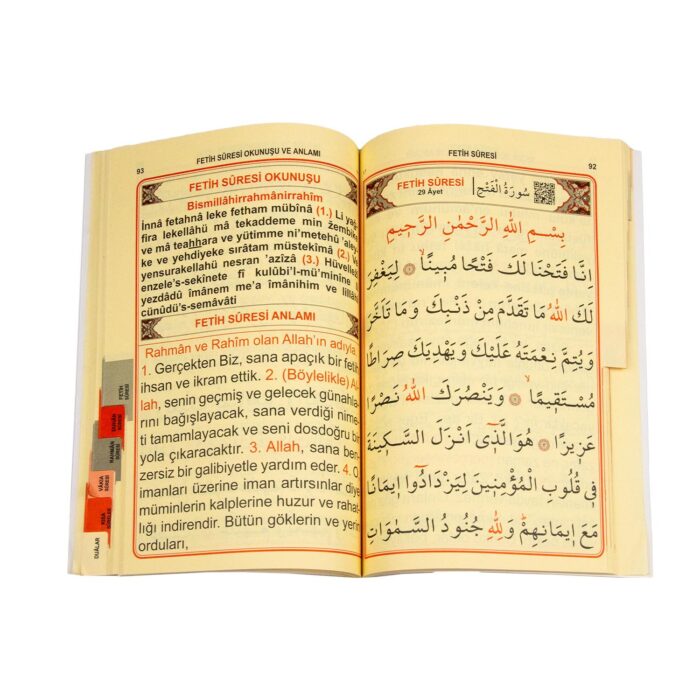 FETİH SÛRESİ
92
FETİH SÛRESİ
29 Âyet
سُورَةُ الْفَتْحِ
بِسْمِ اللهِ الرَّحْمٰنِ الرَّحِيمِ
اِنَّا فَتَحْنَا لَكَ فَتْحًا مُبِينًاۙ لِيَغْفِرَ
لَكَ اللهُ مَا تَقَدَّمَ مِنْ ذَنْبِكَ وَمَا تَاَخَّرَ
وَيُتِمَّ نِعْمَتَهُ عَلَيْكَ وَيَهْدِيَكَ صِرَاطًا
مُسْتَقِيمًاۙ وَيَنْصُرَكَ اللهُ نَصْرًا
عَزِيزًا هُوَ الَّذٖى اَنْزَلَ السَّكِينَةَ
فٖى قُلُوبِ الْمُؤْمِنِينَ لِيَزْدَادُٓوا اِيمَانًا
مَعَ اِيمَانِهِمْ وَلِلّٰهِ جُنُودُ السَّمٰوَاتِ
93
FETİH SÛRESİ OKUNUŞU VE ANLAMI
FETİH SÛRESİ OKUNUŞU
Bismillâhirrahmânirrahîm
İnnâ fetahnâ leke fetham mübînâ (1.) Li yağ-
fira lekellâhü mâ tekaddeme min žembike
ve mâ teahhara ve yütimme ni’metehû ’aley-
ke ve yehdiyeke sırâtam müstekîmâ (2.) Ve
yensurakellahü nesran ’azîzâ (3.) Hüvellež
enzele’s-sekînete fî kulûbi’l-mü’minîne
yezdâdû îmânem me’a îmânihim ve lillâhi
cünûdü’s-semâvâti
FETİH SÛRESİ ANLAMI
Rahmân ve Rahîm olan Allah’ın adıyla.
1. Gerçekten Biz, sana apaçık bir fetih
ihsan ve ikram ettik. 2. (Böylelikle) Al-
lah, senin geçmiş ve gelecek günahla-
rını bağışlayacak, sana verdiği nime-
ti tamamlayacak ve seni dosdoğru bir
yola çıkaracaktır. 3. Allah, sana ben-
zersiz bir galibiyetle yardım eder. 4. O
imanları üzerine iman artırsınlar diye
müminlerin kalplerine huzur ve rahat-
lığı indirendir. Bütün göklerin ve yerin
orduları,
FETİH
SÛRESİ
RAHMÂN
SÛRESİ
VÂKIA
SÛRESİ
KISA
SÛRELER
DUÂLAR